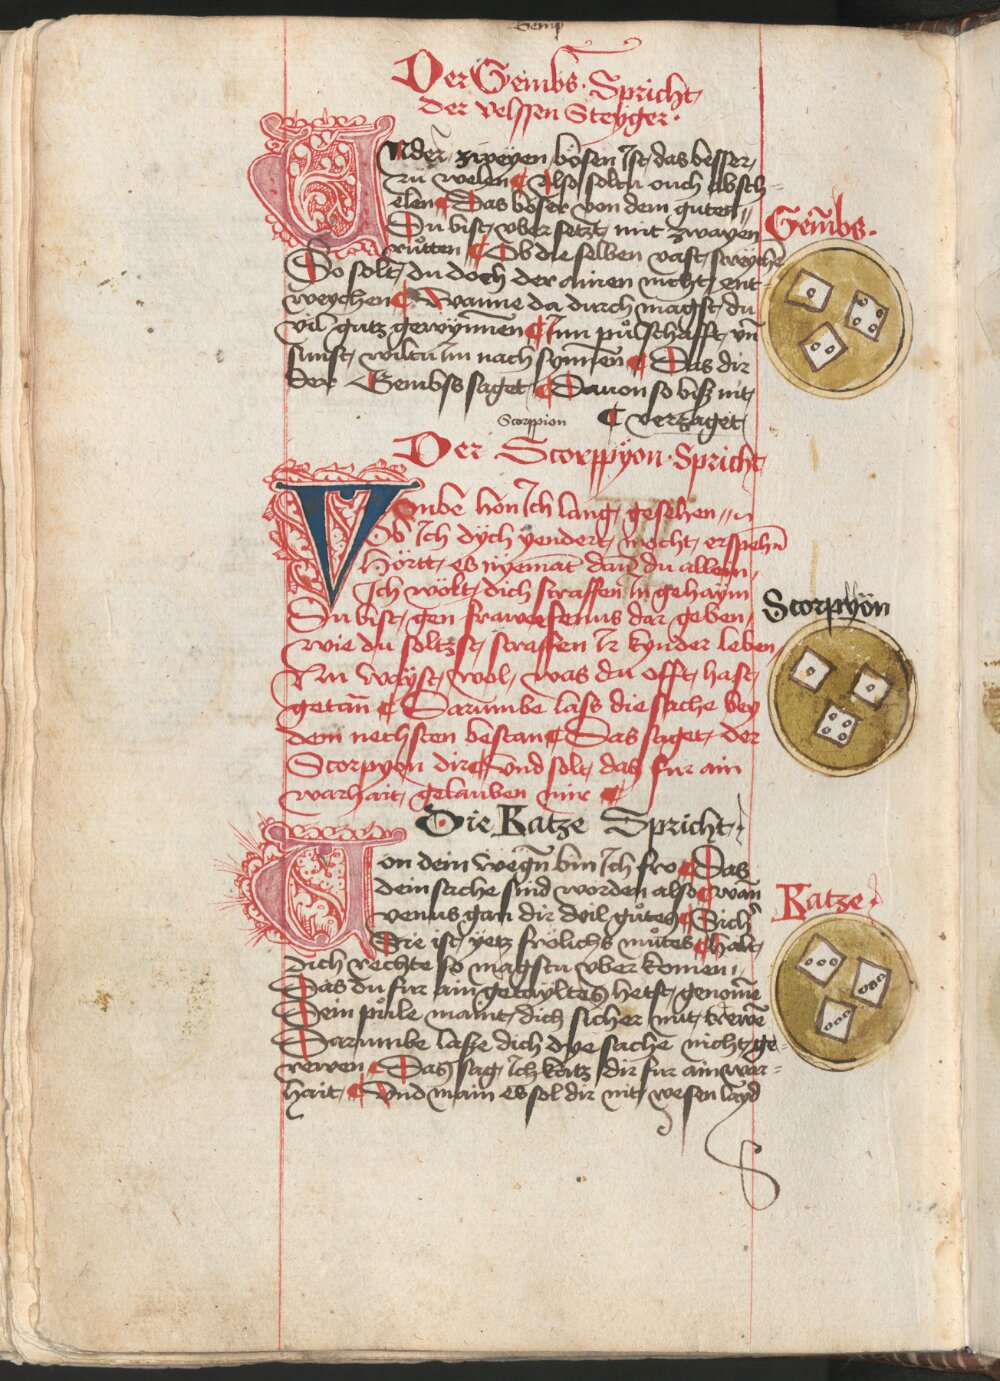 Gemp
Der Gembs · Spricht
der velssen Steyger ·
Under zweyen bösen Ist das besser
zu welen Also soltu ouch absch-
elen Das böser von dem guten
Du bist uber setzt mit zwayen
rutten Ob die selben vast sweyche
So solt du doch der ainen nicht ent
weychen Wanne da durch magst du
vil gutz gewynnen Inn pulschafft vn̄
sunst wiltu Im nach synnen Das dir
der Gembss saget Dauon so biss nit
verzaget
Gembs ·
Scorppion
Der Scorppyon · Spricht
Vmbe hon Ich lang gesehen
Ob Ich dych yendert mocht erspehn
Hortt es nyemat dan̄ du allein
Ich wolt dich straffen In gehaym
Du bist gen frawe fenus dar geben
wie du soltst straffen Ir kynder leben
Nu wayst wol was du offt hast
getan̄ Darumbe lass die sache bey
dem nechsten bestan Das saget der
Scorpyon dir Vnd solt das fur ain
warhait gelauben mir
Scorphyon
Die Katze Spricht
on dein wegn̄ bin Ich fro Das
dein sache sind worden also wan
venus gan dir vil gutes Sich
Die ist yetz frolichs mutes halt
Dich rechte so magstu vber komen
Das du fur ain getayltes hetst genom̄e
Dein pule maint dich sicher mit trewē
Darumbe lasse dich dye sache nicht ge-
rewen Das sag Ich katz dir fur ain war-
hait Vnd main es sol dir nit wesen layd
Katze ·